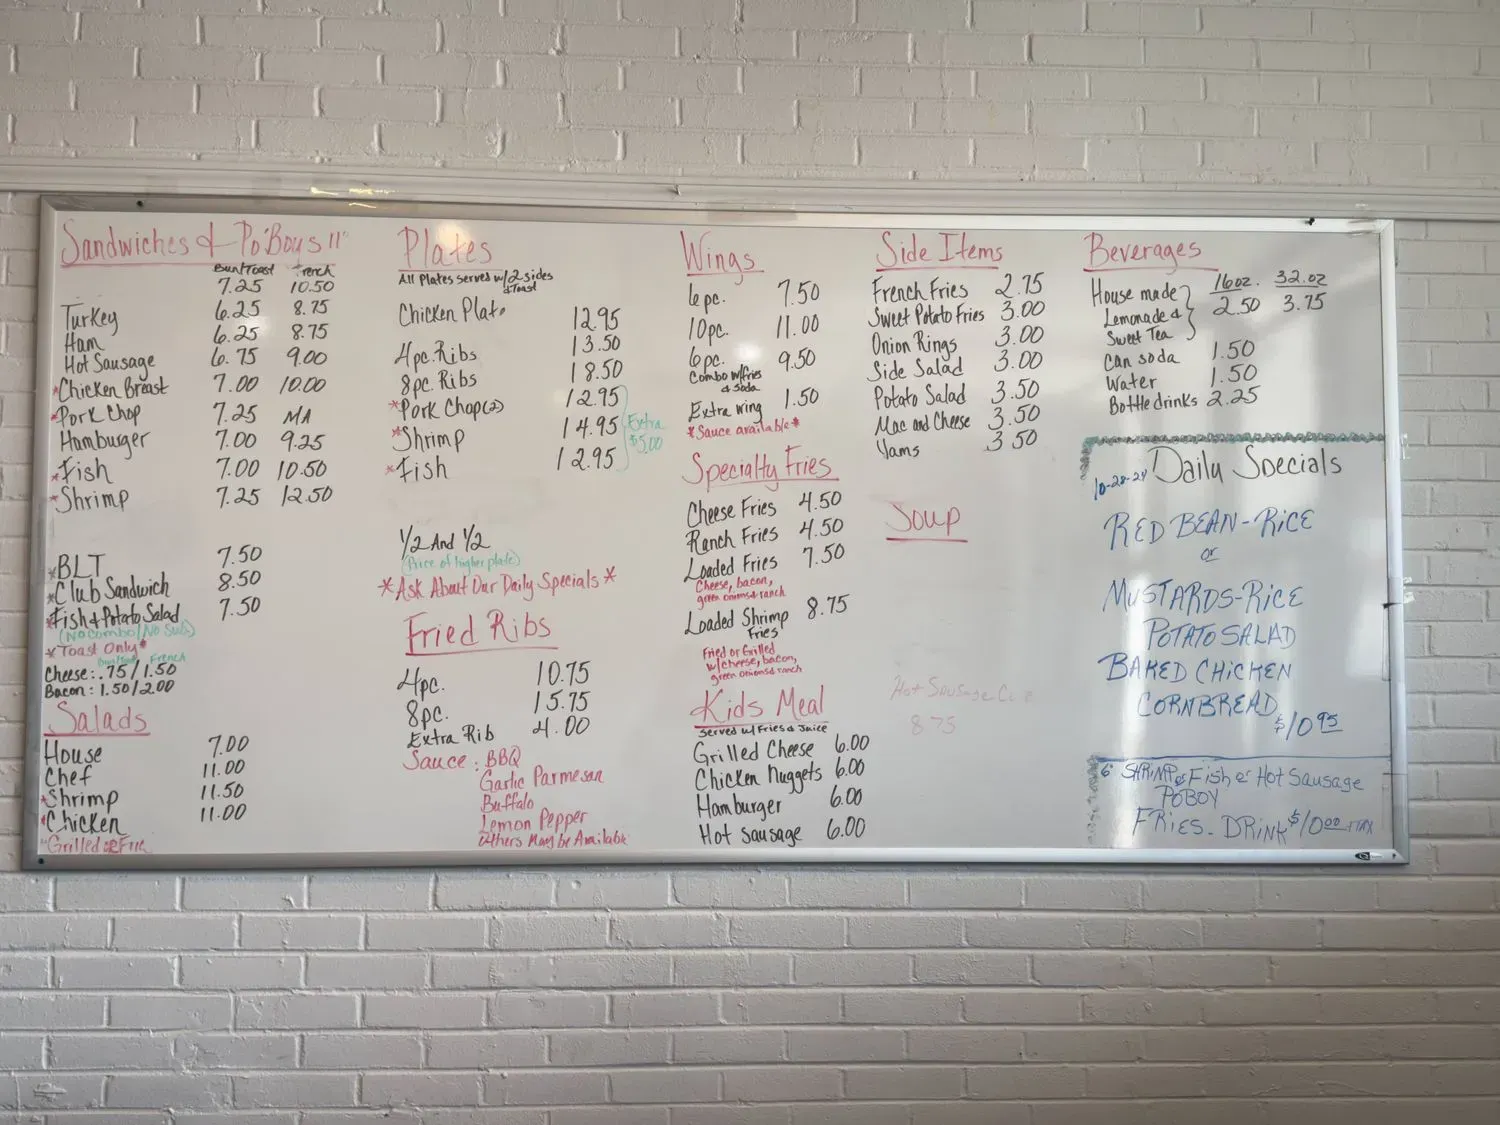 Sandwiches & Po'Boys 11"
Bun/Toast French
Turkey 7.25 10.50
Ham 6.25 8.75
Hot Sausage 6.25 8.75
*Chicken Breast 6.75 9.00
*Pork Chop 7.00 10.00
Hamburger 7.25 MA
*Fish 7.00 9.25
*Shrimp 7.00 10.50
7.25 12.50
*BLT 7.50
*Club Sandwich 8.50
*Fish & Potato Salad 7.50
(No Combo/No Subs)
*Toast Only*
Bun/Toast French
Cheese: .75/1.50
Bacon: 1.50/2.00
Salads
House 7.00
Chef 11.00
*Shrimp 11.50
*Chicken 11.00
*Grilled or Fried
Plates
All Plates served w/2 sides
& Toast
Chicken Plate 12.95
4pc. Ribs 13.50
8pc. Ribs 18.50
*Pork Chop(2) 12.95
*Shrimp 14.95
*Fish 12.95
Extra
$5.00
1/2 And 1/2
(Price of higher plate)
*Ask About Our Daily Specials*
Fried Ribs
4pc. 10.75
8pc. 15.75
Extra Rib 4.00
Sauce: BBQ
Garlic Parmesan
Buffalo
Lemon Pepper
Others May be Available
Wings
6pc. 7.50
10pc. 11.00
6pc. 9.50
Combo w/fries
& soda
Extra wing 1.50
*Sauce available*
Specialty Fries
Cheese Fries 4.50
Ranch Fries 4.50
Loaded Fries 7.50
Cheese, bacon,
green onions & ranch
Loaded Shrimp 8.75
Fries
Fried or Grilled
w/cheese, bacon,
green onions & ranch
Kids Meal
Served w/ Fries & Juice
Grilled Cheese 6.00
Chicken Nuggets 6.00
Hamburger 6.00
Hot Sausage 6.00
Side Items
French Fries 2.75
Sweet Potato Fries 3.00
Onion Rings 3.00
Side Salad 3.00
Potato Salad 3.50
Mac and Cheese 3.50
Yams 3.50
Soup
Hot Sausage
8.75
Beverages
16oz. 32.oz
House made
Lemonade & 2.50 3.75
Sweet Tea
Can soda 1.50
Water 1.50
Bottle drinks 2.25
10-28-24 Daily Specials
RED BEAN-RICE
or
MUSTARDS-RICE
POTATO SALAD
BAKED CHICKEN
CORNBREAD
$10.95
6" SHRIMP or Fish or Hot Sausage
POBOY
FRIES - DRINK $10.00 + TAX